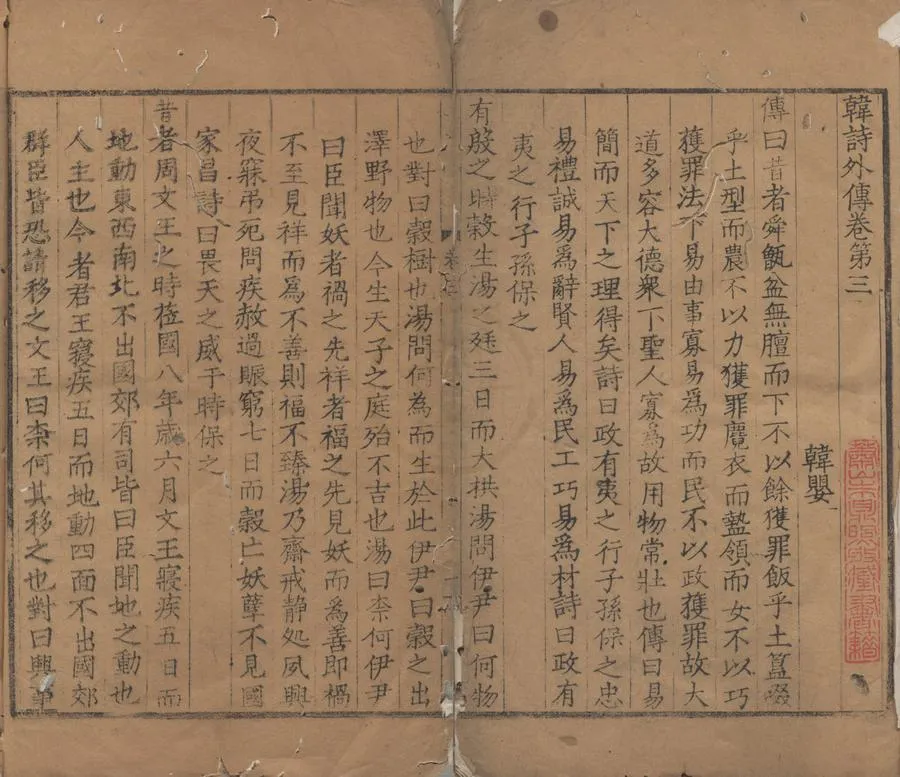 韓詩外傳卷第三
韓嬰
傳曰昔者舜甑盆無膻而下不以餘獲罪飯乎土簋啜
乎土型而農不以力獲罪麑衣而盩領而女不以巧
獲罪法下易由事寡易為功而民不以政獲罪故大
道多容大德衆下聖人寡為故用物常壯也傳曰易
簡而天下之理得矣詩曰政有夷之行子孫保之忠
易禮誠易為辭賢人易為民工巧易為材詩曰政有
夷之行子孫保之
有殷之時榖生湯之廷三日而大拱湯問伊尹曰何物
也對曰榖樹也湯問何為而生於此伊尹曰榖之出
澤野物也今生天子之庭殆不吉也湯曰柰何伊尹
曰臣聞妖者禍之先祥者福之先見妖而為善即禍
不至見祥而為不善則福不臻湯乃齋戒静処夙興
夜寐弔死問疾赦過賑窮七日而榖亡妖孽不見國
家昌詩曰畏天之威于時保之
昔者周文王之時莅國八年歲六月文王寢疾五日而
地動東西南北不出國郊有司皆曰臣聞地之動也
人主也今者君王寢疾五日而地動四面不出國郊
群臣皆恐請移之文王曰柰何其移之也對曰興事